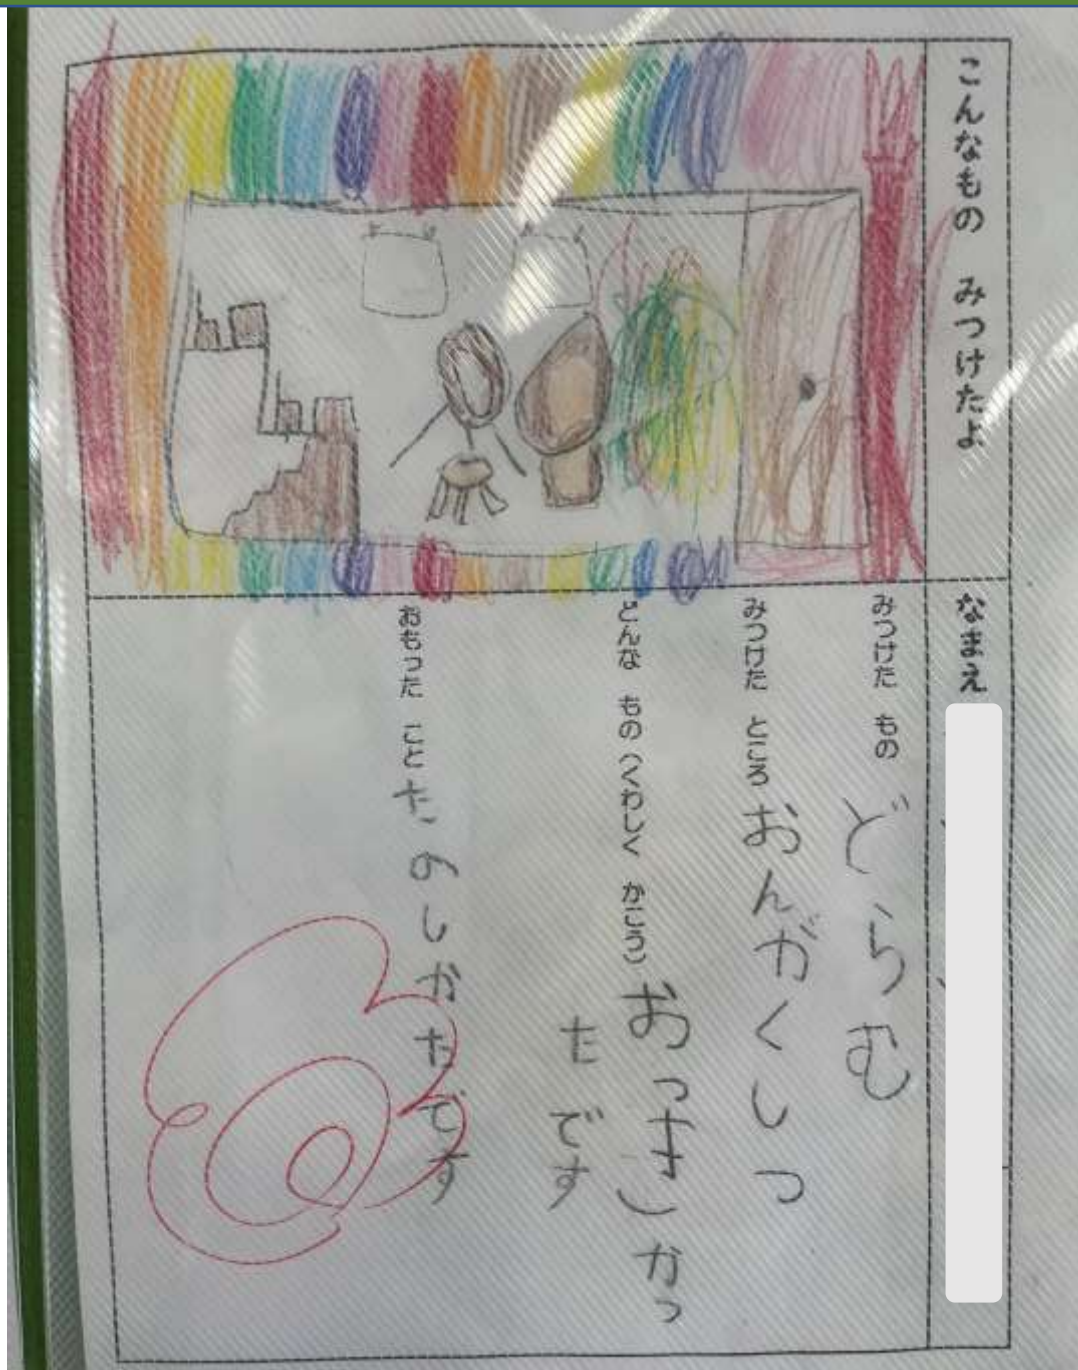 こんなもの みつけたよ
なまえ
みつけた もの どらむ
みつけた ところ おんがくしつ
どんな もの(くわしく かこう) おっきかっ
たです
おもった こと たのしかたです